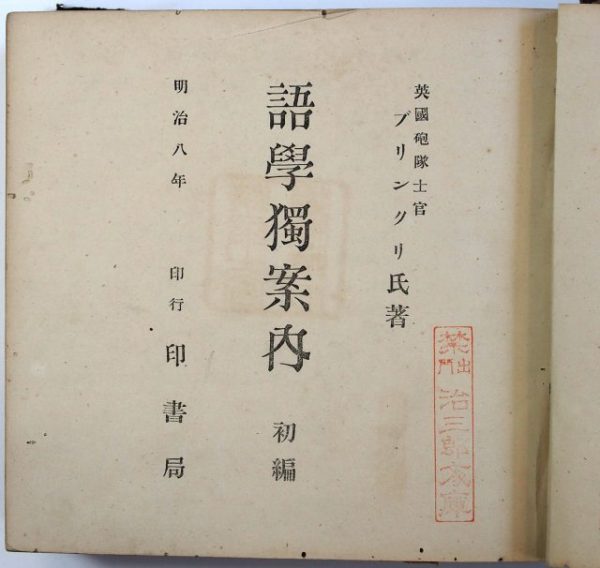 英國砲隊士官
ブリンクリ氏著
語學獨案內 初編
明治八年 印行 印書局
禁出門
治三郎文庫